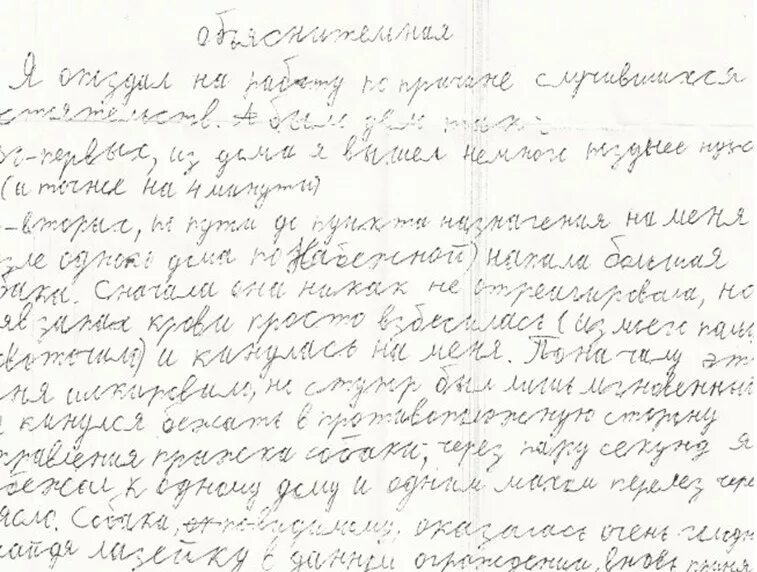 объяснительная
Я опаздал на работу по причине случившихся
стоятельств. А было дело так:
о-первых, из дома я вышел немного позднее нуж
(а точне на 4 минуты)
-вторых, по пути до пункта назначения на меня
ле одного дома по Набежной) напала большая
бака. Сначала она никак не отреагировала, но
яв запах крови просто взбесилась (из моего паль
воточил) и кинулась на меня. Поначалу эт
ня шокировало, но ступр был лишь мгновенный
кинулся бежать в противоположную сторону
правления прыжка собаки, через пару секунд я
бежал к одному дому и одним махом перелез чере
ясло. Собака, по-видимому, оказалась очень голодн
найдя лазейку в данном ограждении, вновь